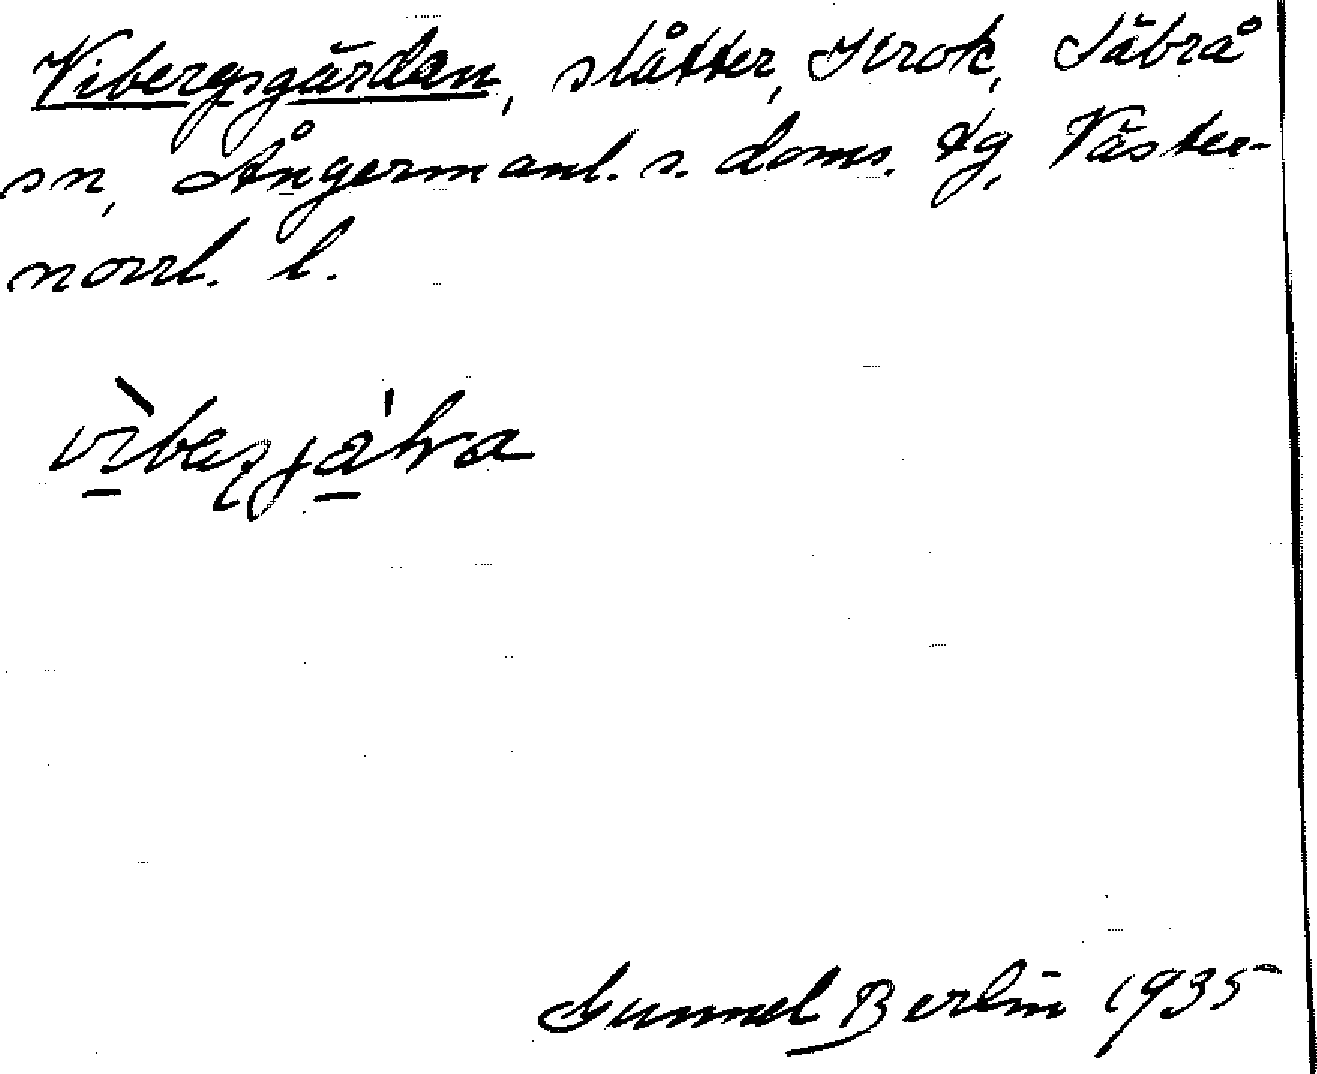 Vibergsgärdan, slåtter, Krok, Säbrå
sn, Ångermanl. s. doms. tg, Väster-
norrl. l.
Gunnel Berlin 1935